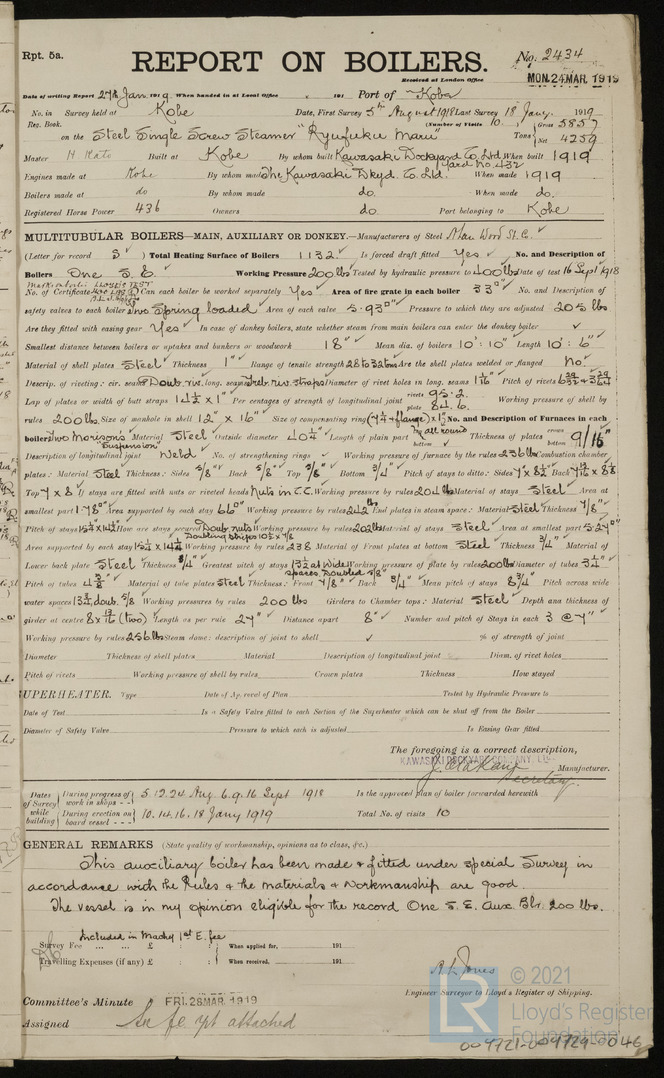 Rpt. 5a.
REPORT ON BOILERS.
No. 2434
Received at London Office MON. 24 MAR. 1919
Date of writing Report 27th Jan 1919 When handed in at Local Office 191 Port of Kobe
No. in Survey held at Kobe Date, First Survey 5th August 1918 Last Survey 18 Jany. 1919
Reg. Book. (Number of Visits 10)
on the Steel Single Screw Steamer "Ryufuku Maru" Tons { Gross 5857 Net 4259
Master H Kato Built at Kobe By whom built Kawasaki Dockyard Co. Ltd. Yard No. 432 When built 1919
Engines made at Kobe By whom made The Kawasaki Dkyd. Co. Ltd. When made 1919
Boilers made at do By whom made do. When made do.
Registered Horse Power 436 Owners do Port belonging to Kobe
MULTITUBULAR BOILERS—MAIN, AUXILIARY OR DONKEY.—Manufacturers of Steel
(Letter for record S) Total Heating Surface of Boilers 1132 Is forced draft fitted Yes No. and Description of
Boilers One S. E. Working Pressure 200 lbs Tested by hydraulic pressure to 400 lbs Date of test 16 Sept 1918
No. of Certificate Can each boiler be worked separately Yes Area of fire grate in each boiler 33□' No. and Description of
safety valves to each boiler Two Spring loaded Area of each valve 5.93□" Pressure to which they are adjusted 205 lbs
Are they fitted with easing gear Yes In case of donkey boilers, state whether steam from main boilers can enter the donkey boiler ✓
Smallest distance between boilers or uptakes and bunkers or woodwork 18" Mean dia. of boilers 10': 10" Length 10': 6"
Material of shell plates Steel Thickness 1" Range of tensile strength 28 to 32 tons Are the shell plates welded or flanged No.
Descrip. of riveting: cir. seams Doub. riv. long. seams Treb. riv. straps Diameter of rivet holes in long. seams 1 1/16" Pitch of rivets
Lap of plates or width of butt straps 14 1/2 x 1" Per centages of strength of longitudinal joint rivets 95.2. plate 84.6. Working pressure of shell by
rules 200 lbs. Size of manhole in shell 12" x 16" Size of compensating ring No. and Description of Furnaces in each
boiler Two Morison's Suspension Material Steel Outside diameter 40 1/4" Length of plain part top bottom Thickness of plates crown bottom 9/16"
Description of longitudinal joint Weld No. of strengthening rings Working pressure of furnace by the rules 236 lbs Combustion chamber
plates: Material Steel Thickness: Sides 5/8" Back 5/8" Top 5/8" Bottom 3/4" Pitch of stays to ditto: Sides 7" x 8 1/2" Back
Top 7 x 8 If stays are fitted with nuts or riveted heads Nuts in C.C. Working pressure by rules 204 lbs Material of stays Steel Area at
smallest part Area supported by each stay 66□" Working pressure by rules End plates in steam space: Material Steel Thickness 7/8"
Pitch of stays How are stays secured Doub. nuts Working pressure by rules 202 lbs Material of stays Steel Area at smallest part 5.27□"
Area supported by each stay Working pressure by rules 238 Material of Front plates at bottom Steel Thickness 3/4" Material of
Lower back plate Steel Thickness 3/4" Greatest pitch of stays Working pressure of plate by rules 200 lbs Diameter of tubes 3 1/4"
Pitch of tubes Material of tube plates Steel Thickness: Front 7/8" Back 3/4" Mean pitch of stays 8 3/4" Pitch across wide
water spaces Working pressures by rules 200 lbs Girders to Chamber tops: Material Steel Depth and thickness of
girder at centre (two) Length as per rule 27" Distance apart 8" Number and pitch of Stays in each 3 @ 7"
Working pressure by rules 256 lbs Steam dome: description of joint to shell ✓ % of strength of joint
Diameter Thickness of shell plates Material Description of longitudinal joint Diam. of rivet holes
Pitch of rivets Working pressure of shell by rules Crown plates Thickness How stayed
UPERHEATER. Type Date of Approval of Plan Tested by Hydraulic Pressure to
Date of Test Is a Safety Valve fitted to each Section of the Superheater which can be shut off from the Boiler
Diameter of Safety Valve Pressure to which each is adjusted Is Easing Gear fitted
The foregoing is a correct description,
KAWASAKI DOCKYARD COMPANY, LTD.
Manufacturer.
Secretary.
Dates of Survey while building
During progress of work in shops - - 5.12.24 Aug 6.9.16 Sept 1918 Is the approved plan of boiler forwarded herewith
During erection on board vessel - - - 10.14.16.18 Jany 1919 Total No. of visits 10
GENERAL REMARKS (State quality of workmanship, opinions as to class, &c.)
This auxiliary boiler has been made & fitted under special Survey in
accordance with the Rules & the materials & Workmanship are good.
The vessel is in my opinion eligible for the record One S. E. Aux. Blr. 200 lbs.
Included in Machy 1st E. fee
Survey Fee ... ... £ : : When applied for, 191
Travelling Expenses (if any) £ : : When received, 191
A. L. Jones
Engineer Surveyor to Lloyd's Register of Shipping.
Committee's Minute FRI. 28 MAR. 1919
Assigned attached
© 2021
LR
Lloyd's Register
Foundation
004721-004729-0046